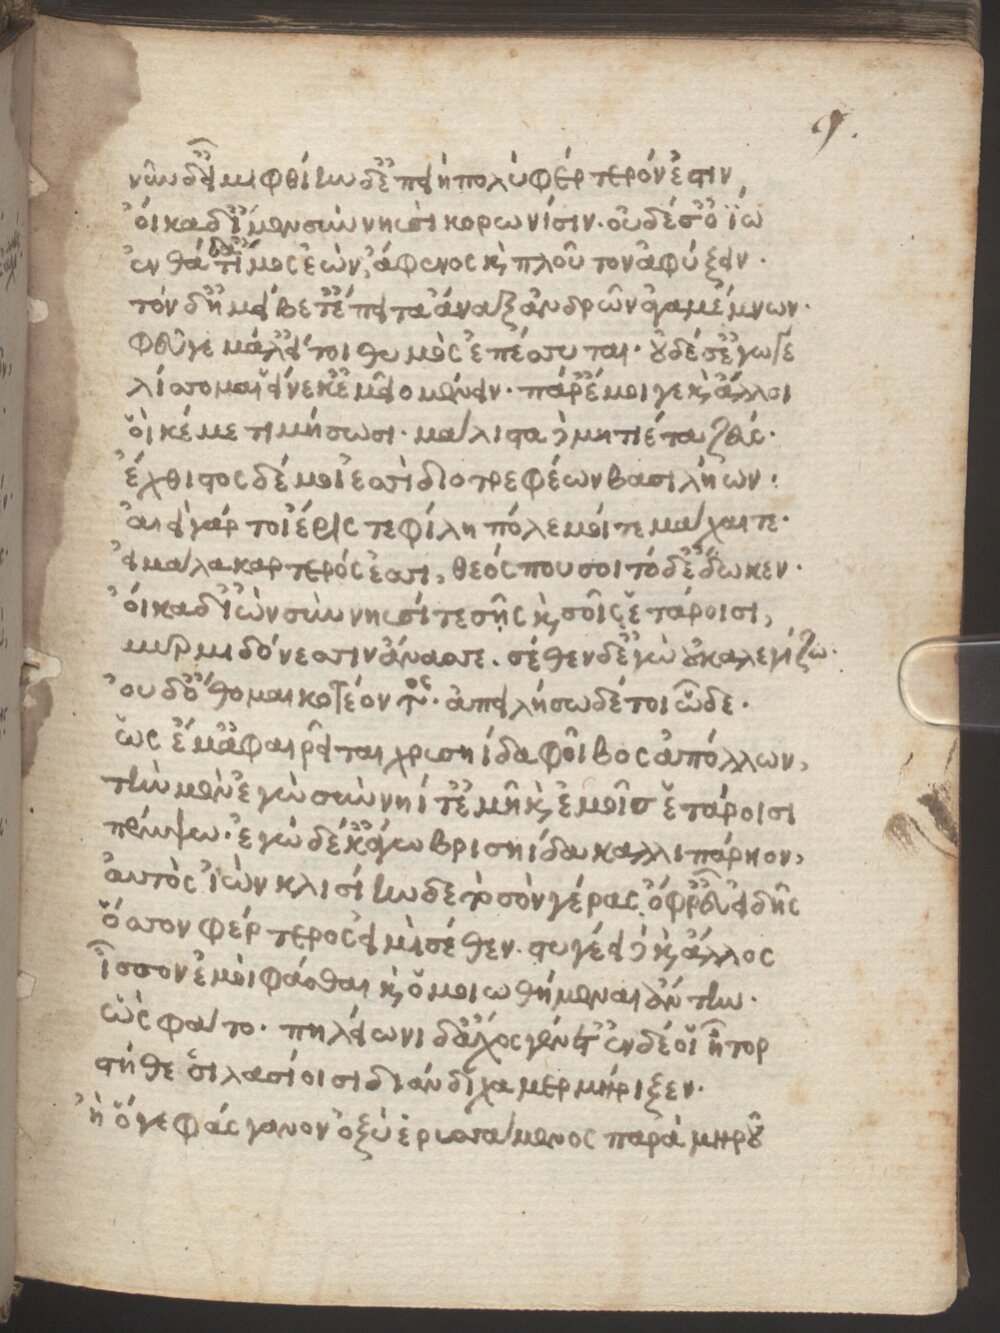 9.
νῦν δ' εἶμι φθίην δ' ἐπεὶ ἦ πολὺ φέρτερόν ἐστιν,
οἴκαδ' ἴμεν σὺν νηυσὶ κορωνίσιν. οὐδέ σ' ὀΐω
ἐνθάδ' ἄτιμος ἐὼν, ἄφενος καὶ πλοῦτον ἀφύξειν.
τὸν δ' ἠμείβετ' ἔπειτα ἄναξ ἀνδρῶν ἀγαμέμνων.
φεῦγε μάλ' εἴ τοι θυμὸς ἐπέσσυται. οὐδέ σ' ἔγωγε
λίσσομαι εἵνεκ' ἐμεῖο μένειν. πάρ' ἔμοιγε καὶ ἄλλοι
οἵ κέ με τιμήσωσι. μάλιστα δὲ μητίετα ζεύς.
ἔχθιστος δέ μοι ἐσσὶ διοτρεφέων βασιλήων.
αἰεὶ γάρ τοι ἔρις τε φίλη πόλεμοί τε μάχαι τε.
εἰ μάλα καρτερός ἐσσι, θεός που σοὶ τό δ' ἔδωκεν.
οἴκαδ' ἰὼν σὺν νηυσί τε σῇς καὶ σοῖς ἑτάροισι,
μυρμιδόνεσσιν ἄνασσε. σέθεν δ' ἐγὼ οὐκ ἀλεγίζω.
οὐδ' ὄθομαι κοτέοντος. ἀπειλήσω δέ τοι ὧδε.
ὡς ἔμ' ἀφαιρεῖται χρυσηίδα φοῖβος ἀπόλλων,
τὴν μὲν ἐγὼ σὺν νηί τ' ἐμῇ καὶ ἐμοῖς ἑτάροισι
πέμψω. ἐγὼ δέ κ' ἄγω βρισηίδα καλλιπάρηον,
αὐτὸς ἰὼν κλισίην δε τὸ σὸν γέρας, ὄφρ' εὖ εἰδῇς
ὅσσον φέρτερος εἰμὶ σέθεν. στυγέει δὲ καὶ ἄλλος
ἶσσον ἐμοὶ φάσθαι καὶ ὁμοιωθήμεναι ἄντην.
ὣς φάτο. πηλείωνι δ' ἄχος γένετ' ἐν δέ οἱ ἦτορ
στήθεσσι λασίοισι διάνδιχα μερμήριξεν.
ἢ ὅγε φάσγανον ὀξὺ ἐρυσσάμενος παρὰ μηροῦ